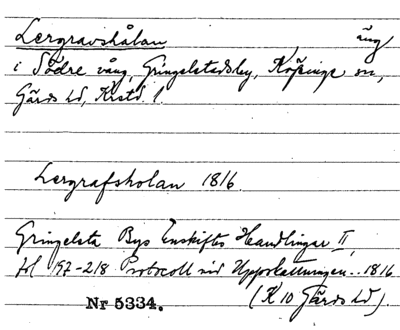 Lergravshålan äng
i Södre vång, Gringelstadsby, Köpinge sn,
Gärds hd, Krstd. l.
Lergrafsholan 1816.
Gringelsta Bys Enskiftes Handlingar II,
fol 197-218 Protocoll vid Uppskattningen.. 1816
Nr 5334. (K 10 Gärds hd).